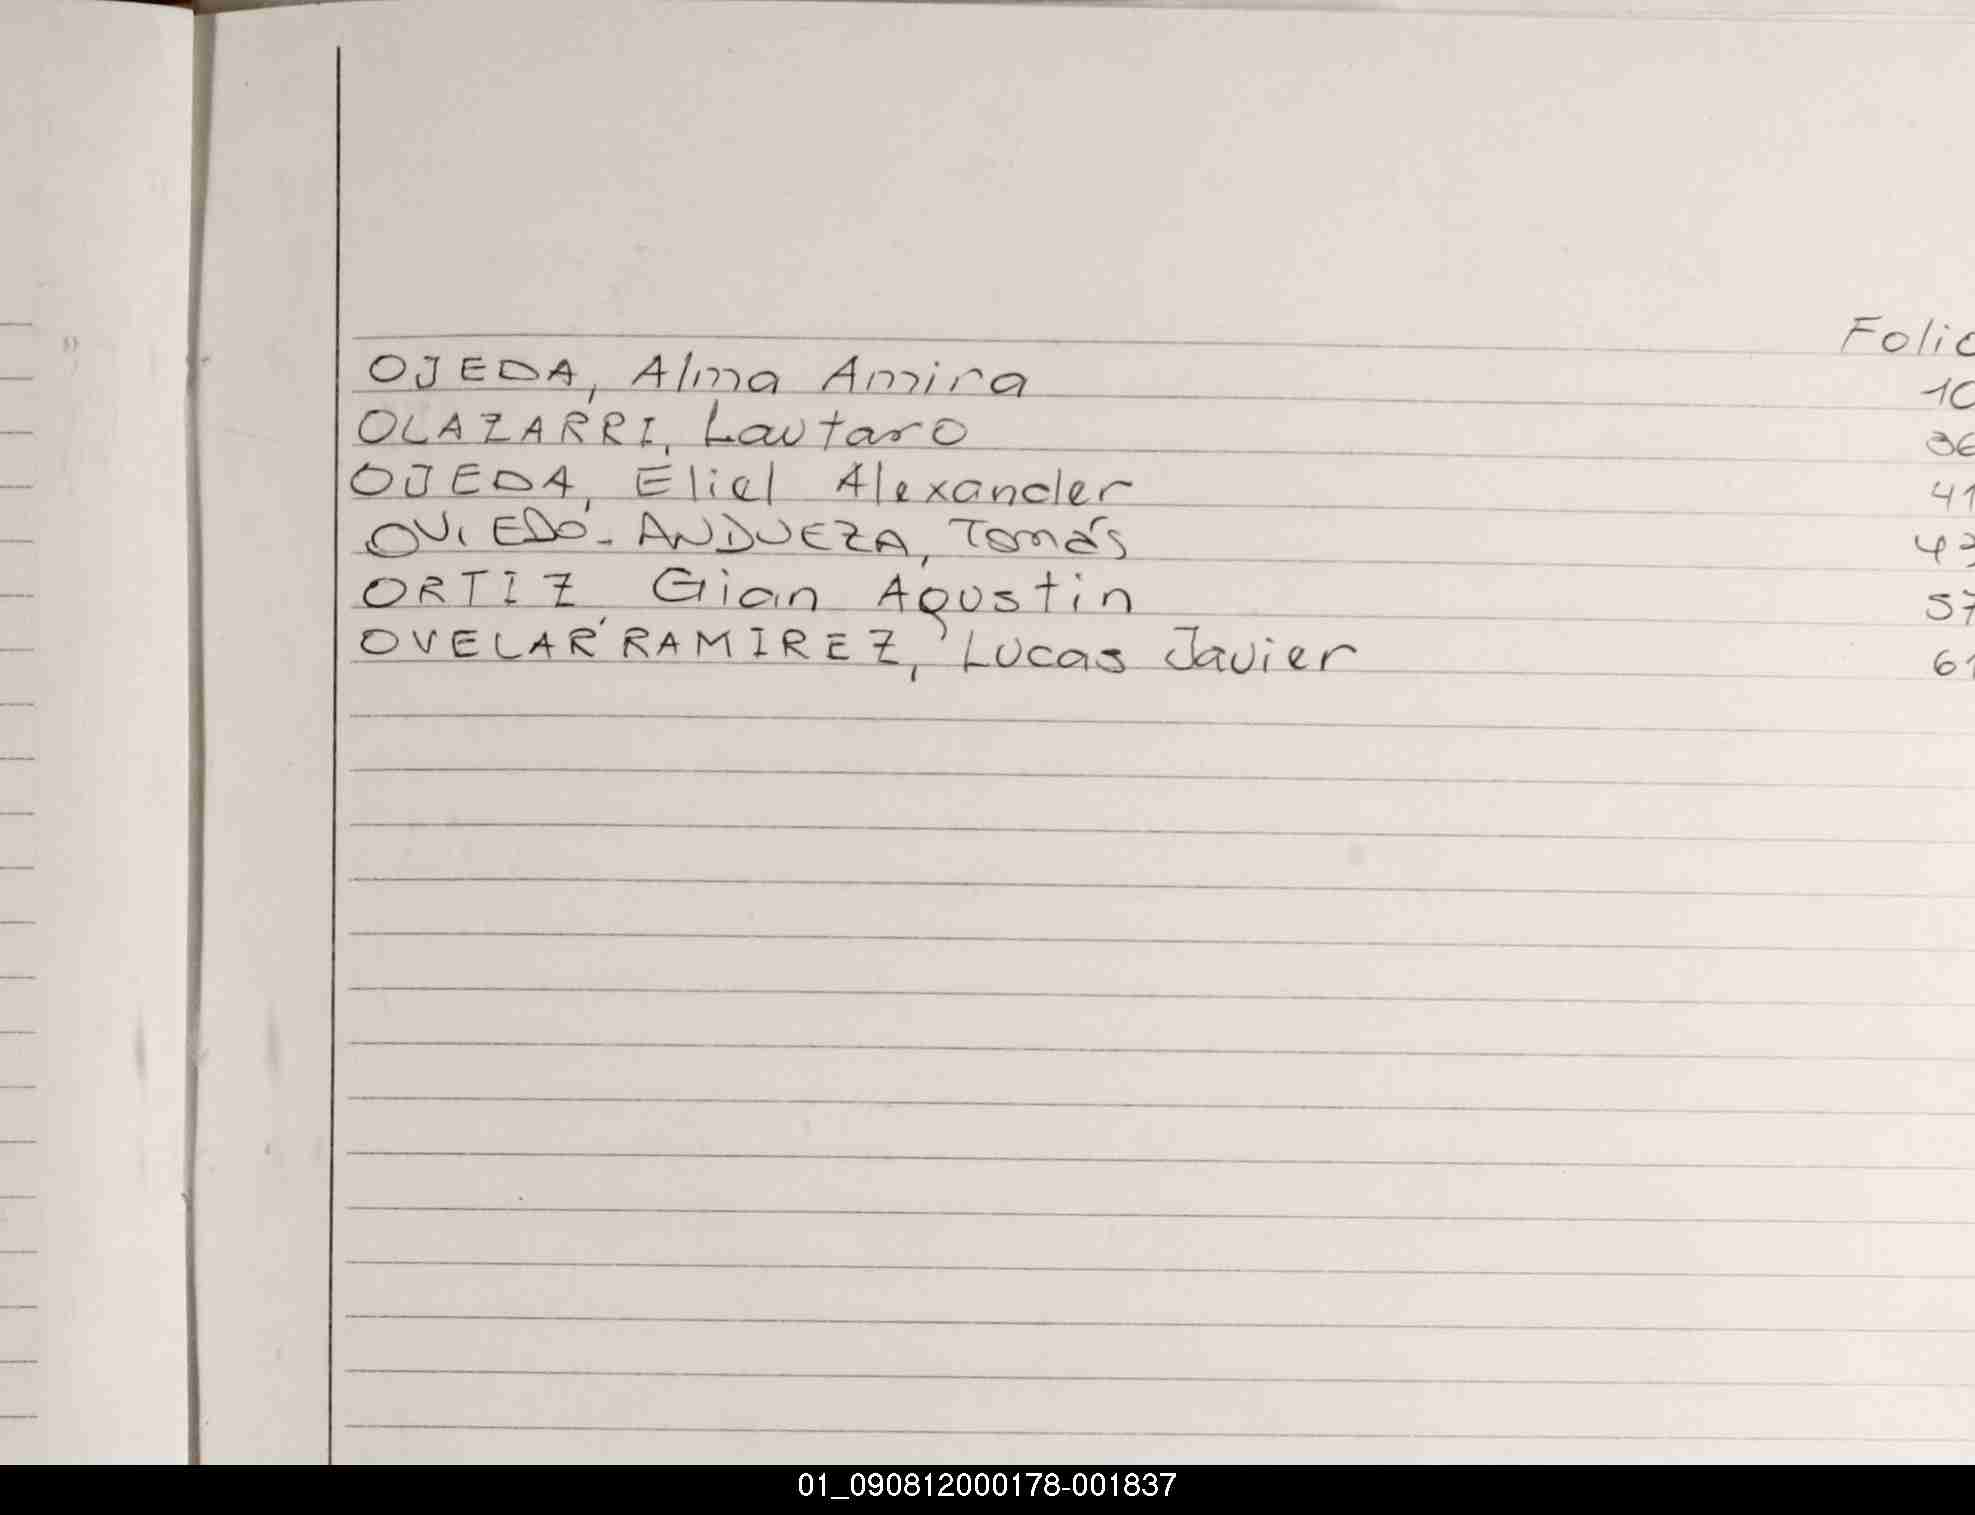 Folio
OJEDA, Alma Amira 10
OLAZARRI, Lautaro 36
OJEDA, Eliel Alexander 41
OVIEDO - ANDUEZA, Tomás 43
ORTIZ Gian Agustin 57
OVELAR RAMIREZ, Lucas Javier 61
01_090812000178-001837